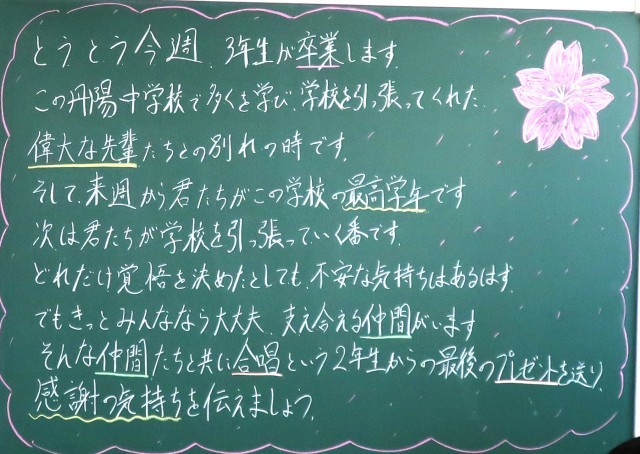 とうとう今週、3年生が卒業します
この丹陽中学校で多くを学び、学校を引っ張ってくれた
偉大な先輩たちとの別れの時です。
そして、来週から君たちがこの学校の最高学年です
次は君たちが学校を引っ張っていく番です。
どれだけ覚悟を決めたとしても、不安な気持ちはあるはず。
でもきっとみんななら大丈夫、支え合える仲間がいます
そんな仲間たちと共に合唱という2年生からの最後のプレゼントを送り、
感謝の気持ちを伝えましょう。